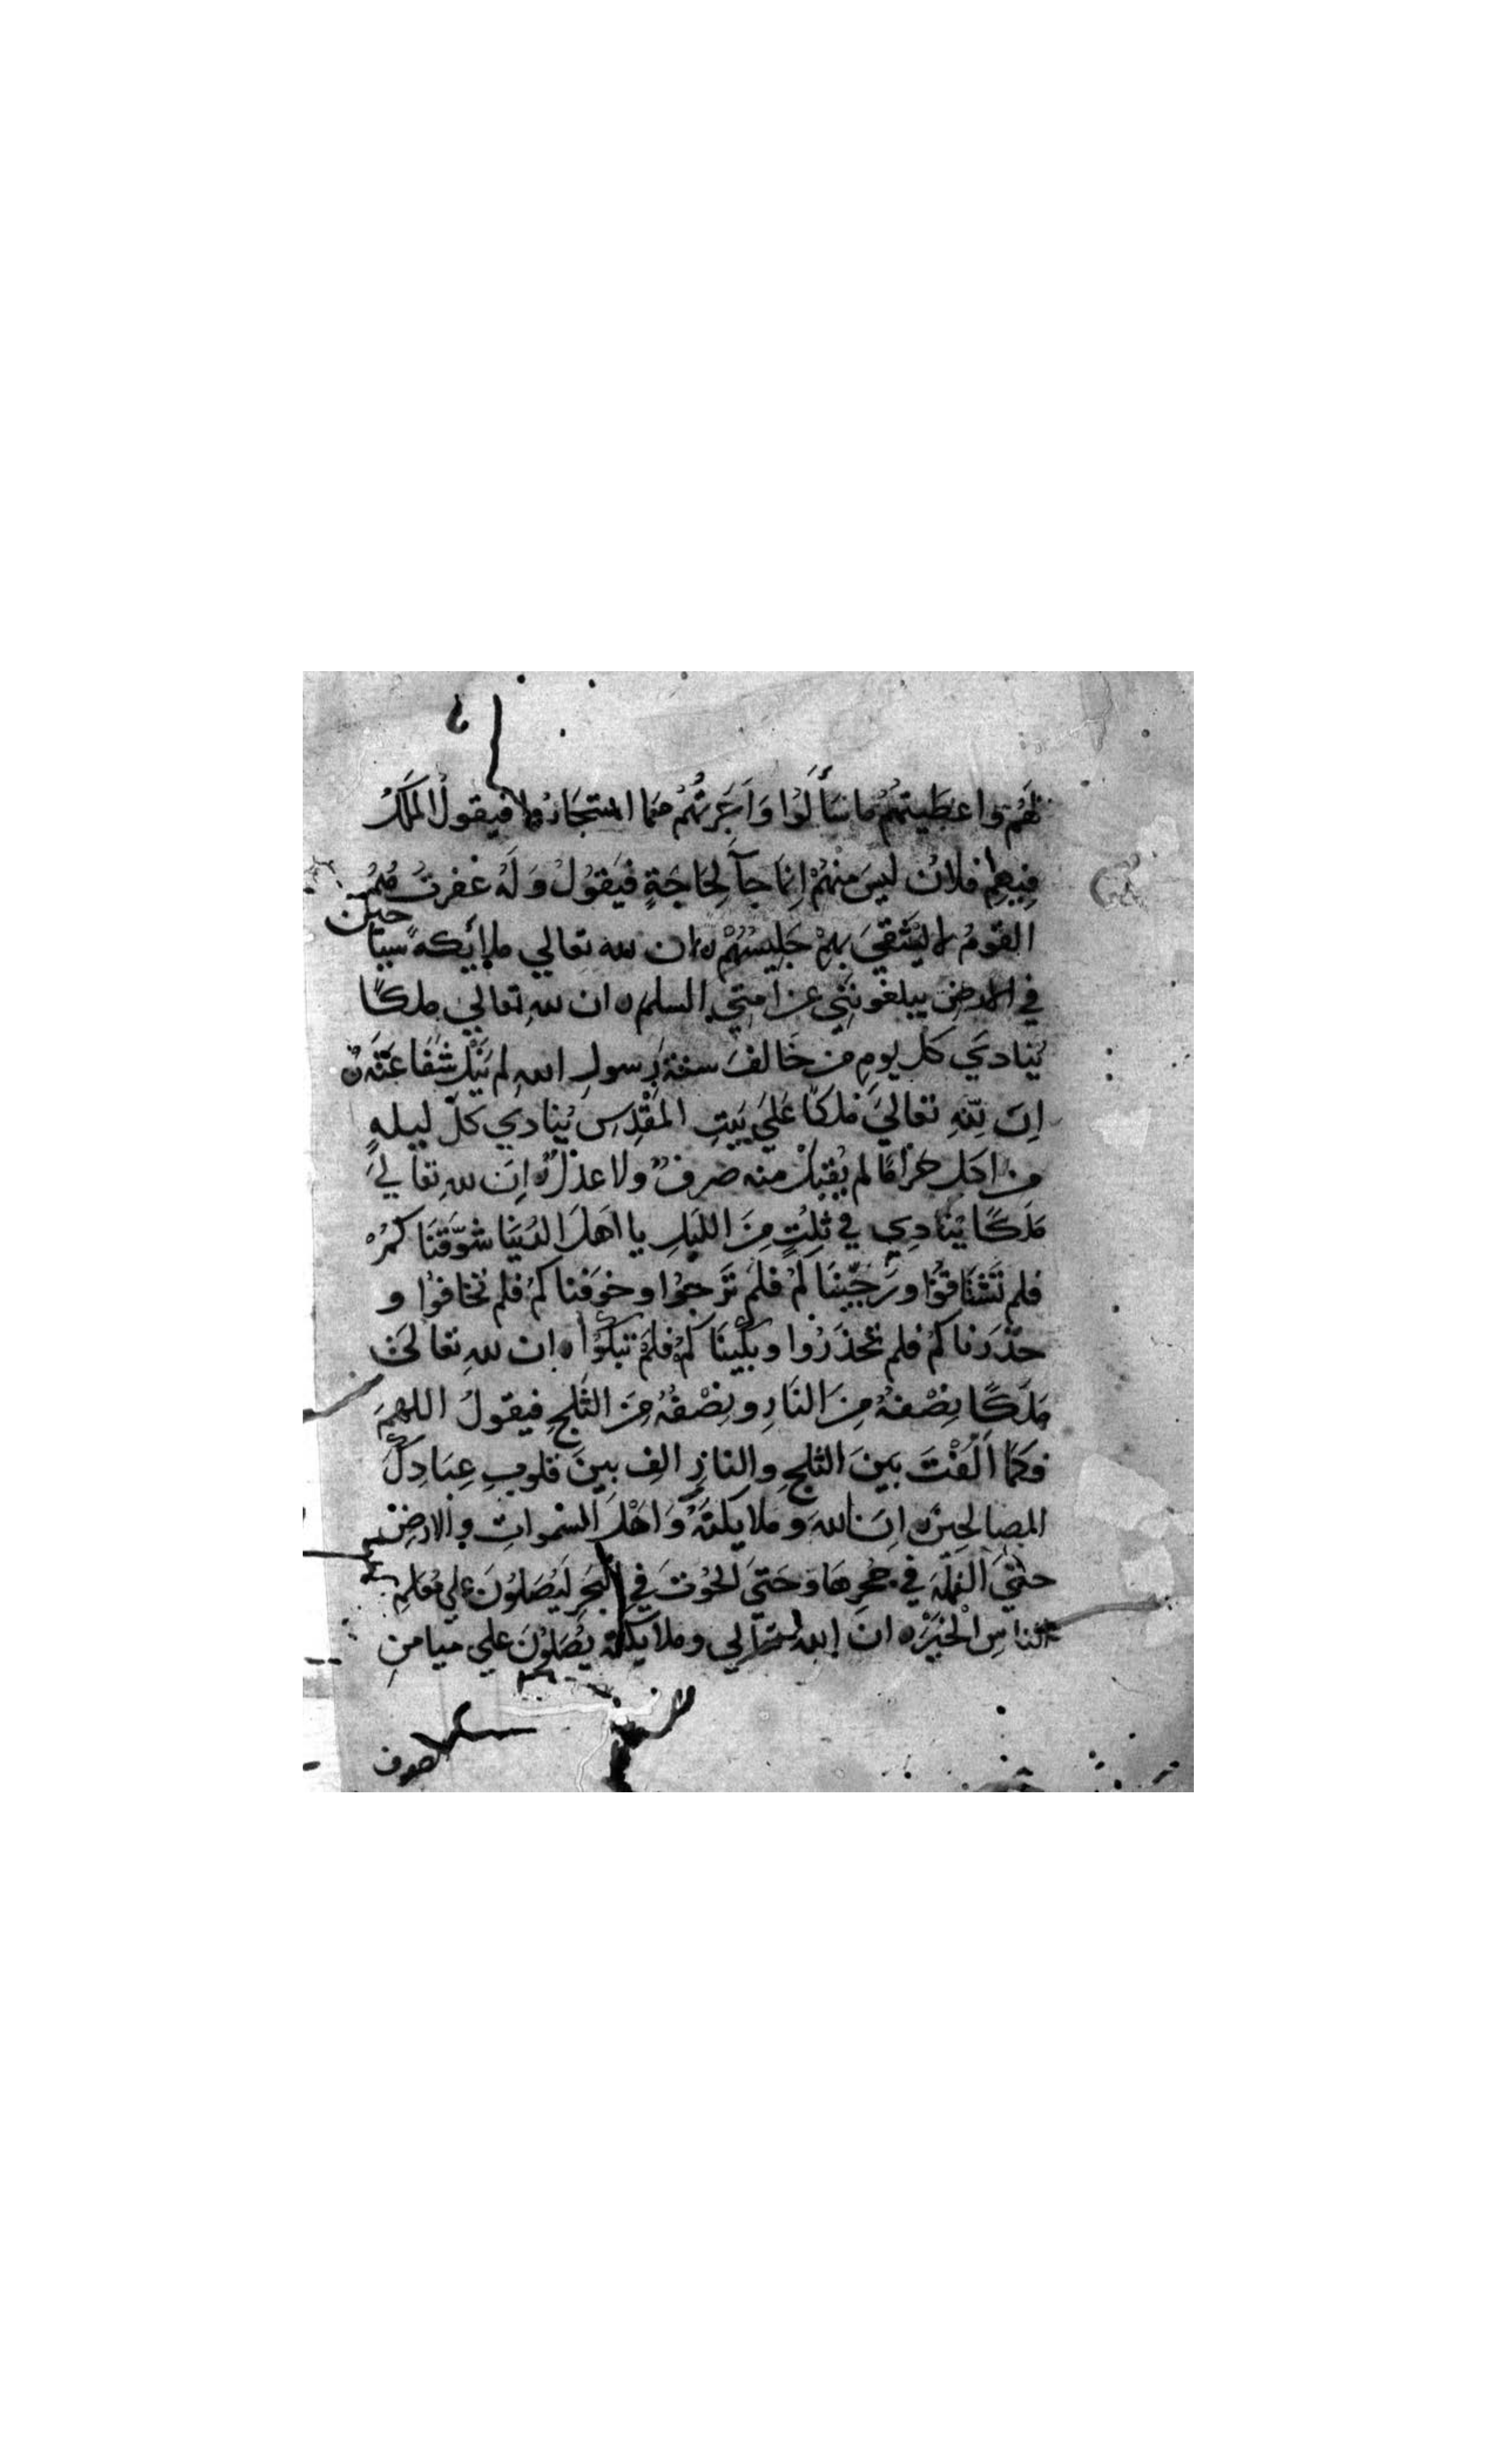 لَهُمْ واعطَيتهُمْ ما سَأَلَوُا وَاَجَرتهُمْ مما استجَارُوا فيقولُ المَلَكُ
فِيهِم فلانٌ ليسَ مِنْهُمْ اِنمَا جآَ لِحَاجَةٍ فيَقوُلُ وَلَهُ غفرتُ هُمُ
القومُ لا يَشْقيَ بهِمْ جَليسُهُمْ ه ان لله تعالي ملايكه سيا
حين
في الارضِ يبلغونَنِي عن امتِي السلم ه ان للهِ تعالي ملكًا
يُنادي كل يومٍ من خَالفَ سنة رسولِ اللهِ لم تَنَلْهُ شفَاعَتَه ه
اِنَ لِلّهِ تعاليَ مَلكًا عَليَ بَيتِ المَقْدِسِ يُنادي كلَ ليلهٍ
من اكل حرامًا لم يُقْبَلْ منه صرفٌ ولا عدلٌ ه اِنَ للهِ تعاليَ
مَلَكًا يُنَادِي في ثلِثٍ مِنَ الليَلِ يا اَهلَ الدُنيَا شوَّقنَاكمُرْ
فلم تَشْتاقوُا ورَجَّينَاكمُ فلمَ تَرجوُا وخوَفناكمُ فلم تخافوُا و
حذرَناكمُ فلم تحذَرُوا وبكَّينَاكمُ فلمَ تبكوُا ه ان للهِ تعالىَ
مَلَكًا نِصْفهُ مِنَ النَارِ ونِصْفُهُ مِنَ الثَلجِ فيقولُ اللهمَ
فكما اَلَفْتَ بَينَ الثلجِ والنارِ الِف بينَ قلوبِ عِبَادِكَ
الصالحِينَ ه اِنَ اللهَ وملايكتَهُ وَاَهْلَ السَموَاتِ والارضِ
حتيَ النملَةَ في جُحرِهَا وَحَتيَ الحُوتَ في البَحَرِ ليَصَلوُنَ علي مُعَلمِ
الناسِ الْخَيَرْ ه انَ الله تعالي وملايكته يُصَلوُنَ علي ميامنِ
الصفوف